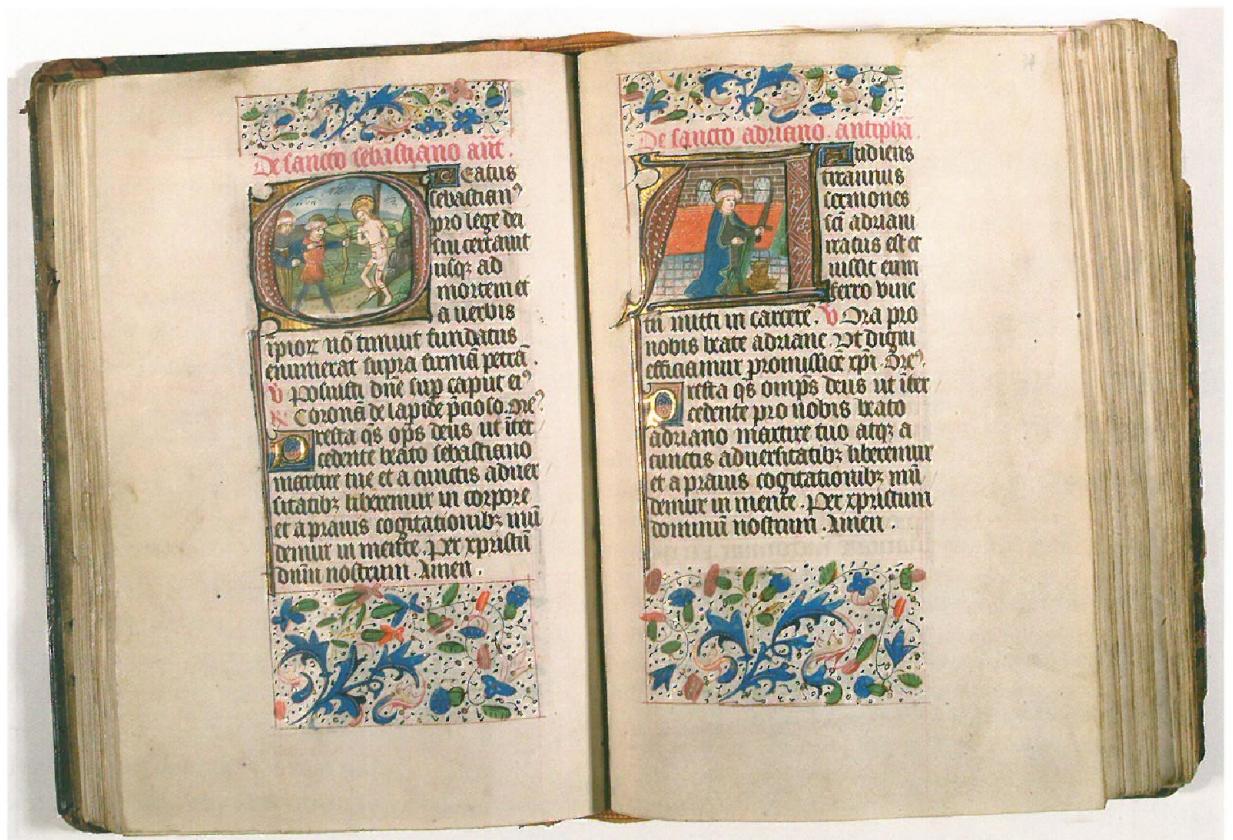 De sancto sebastiano añt.
Beatus
sebastian⁹
pro lege dei
sui certauit
usq; ad
mortem et
a uerbis
īpioꝝ nō timuit fundatus
enim erat supra firmā petrā.
V Posuisti dñe sup caput ei⁹
R Coronā de lapide p̄cioso. Ore⁹
Presta qs ops deus ut īter
cedente beato sebastiano
martire tuo et a cunctis aduer
sitatibꝫ liberemur in corpore
et a prauis cogitationibꝫ mū
demur in mente. Per xpristū
dnm̄ nostrum. Amen.
De sancto adriano. antipha̅.
Audiens
tirannus
sermones
sci̅ adriani
iratus est et
iussit eum
ferro vinc
tū mitti in carcere̅. V Ora pro
nobis beate adriane. Vt digni
efficiamur promissiōe xp̄i. Ore⁹
Presta qs omps deus ut īter
cedente pro nobis beato
adriano martire tuo atqꝫ a
cunctis aduersitatibꝫ liberemur
et a prauis cogitationibꝫ mū
demur in mente. Per xpristum
dominū nostrum. Amen.